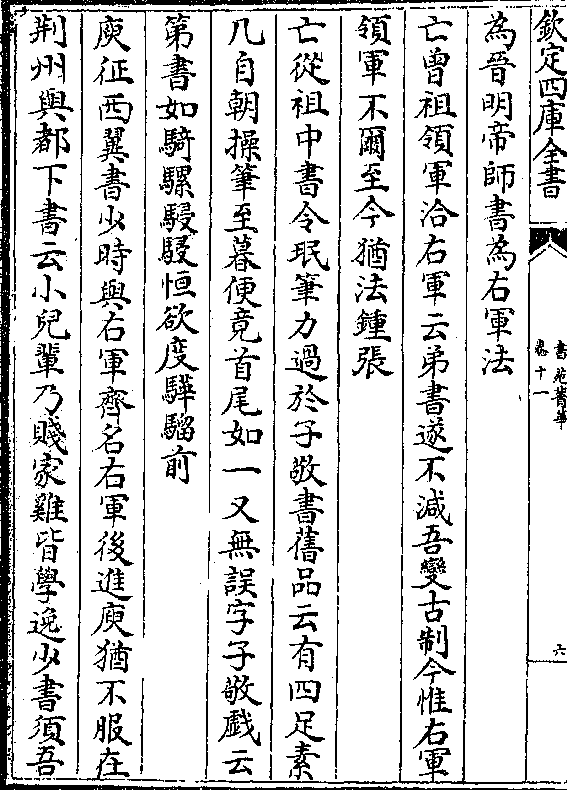 欽定四庫全書
書苑菁華
卷十一
六
為晉明帝師書為右軍法
亡曾祖領軍洽右軍云弟書遂不減吾變古制今惟右軍
領軍不爾至今猶法鍾張
亡從祖中書令珉筆力過於子敬書舊品云有四足素
几自朝操筆至暮便竟首尾如一又無誤字子敬戲云
第書如騎騾駸駸恒欲度驊騮前
庾征西翼書少時與右軍齊名右軍後進庾猶不服在
荆州與都下書云小兒輩乃賤家雞皆學逸少書須吾